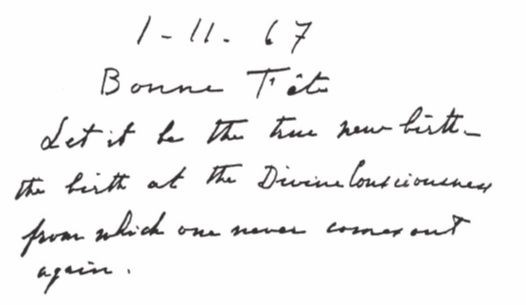 1-11-67
Bonne Fête
Let it be the true new birth -
the birth at the Divine Consciousness
from which one never comes out
again.